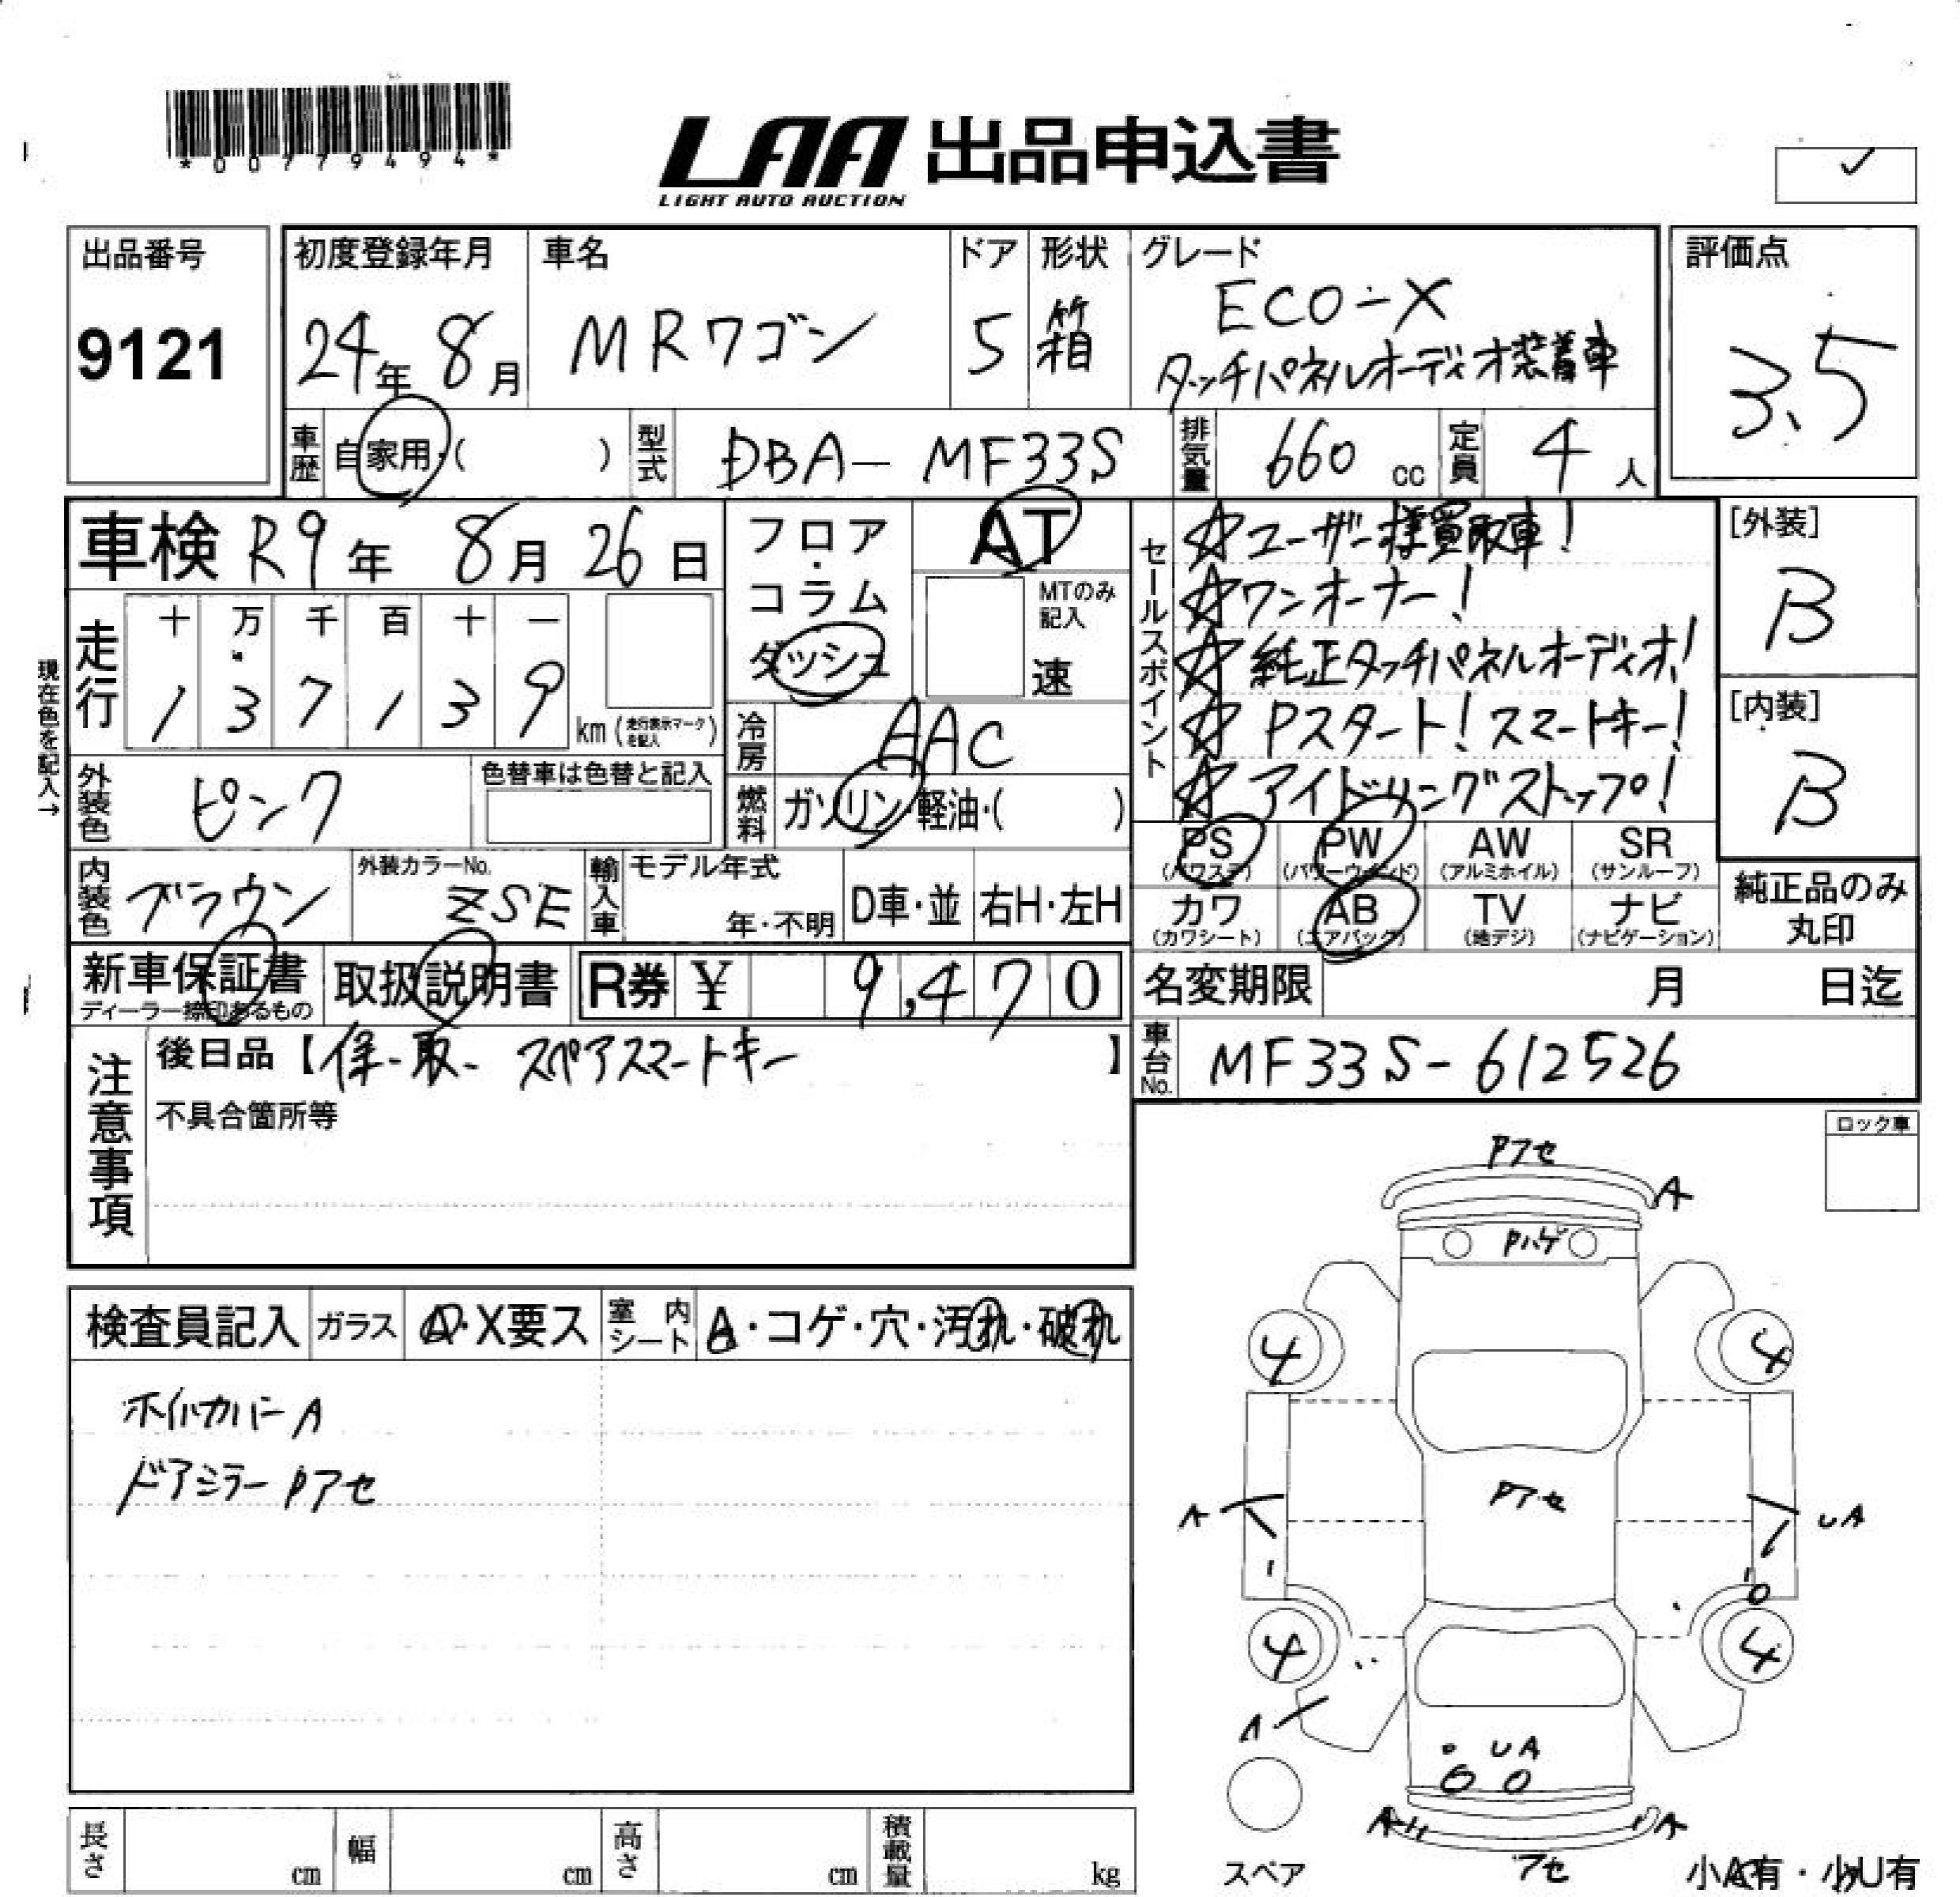 *00779494*
LAA 出品申込書
LIGHT AUTO AUCTION
出品番号
9121
初度登録年月
24年 8月
車名
MRワゴン
ドア
5
形状
箱
グレード
ECO-X
タッチパネルオーディオ装着車
評価点
3.5
車歴 自家用・( )
型式 DBA-MF33S
排気量 660 cc
定員 4 人
車検 R9年 8月 26日
走行
十 万 千 百 十 一
1 3 7 1 3 9 km (走行表示マークを記入)
現在色を記入→
外装色 ピンク
色替車は色替と記入
内装色 ブラウン
外装カラーNo. ZSE
フロア・コラム
ダッシュ
AT
MTのみ記入
速
冷房 AAC
燃料 ガソリン・軽油・( )
輸入車 モデル年式
年・不明
D車・並
右H・左H
セールスポイント
☆ユーザー様買取車!
☆ワンオーナー!
☆純正タッチパネルオーディオ!
☆Pスタート!スマートキー!
☆アイドリングストップ!
[外装]
B
[内装]
B
PS (パワステ)
PW (パワーウインド)
AW (アルミホイル)
SR (サンルーフ)
カワ (カワシート)
AB (エアバック)
TV (地デジ)
ナビ (ナビゲーション)
純正品のみ丸印
新車保証書
ディーラー捺印あるもの
取扱説明書
R券 ¥ 9,470
名変期限 月 日迄
車台No. MF33S-612526
注意事項
後日品【保-取- スペアスマートキー 】
不具合箇所等
ロック車
検査員記入
ガラス A・X要ス
室内シート A・コゲ・穴・汚れ・破れ
ホイルカバーA
ドアミラーPアセ
Pアセ
A
Pハゲ
4
4
Pアセ
A
UA
4
4
A
UA
A
A
アセ
スペア
小A有・小U有
長さ cm
幅 cm
高さ cm
積載量 kg